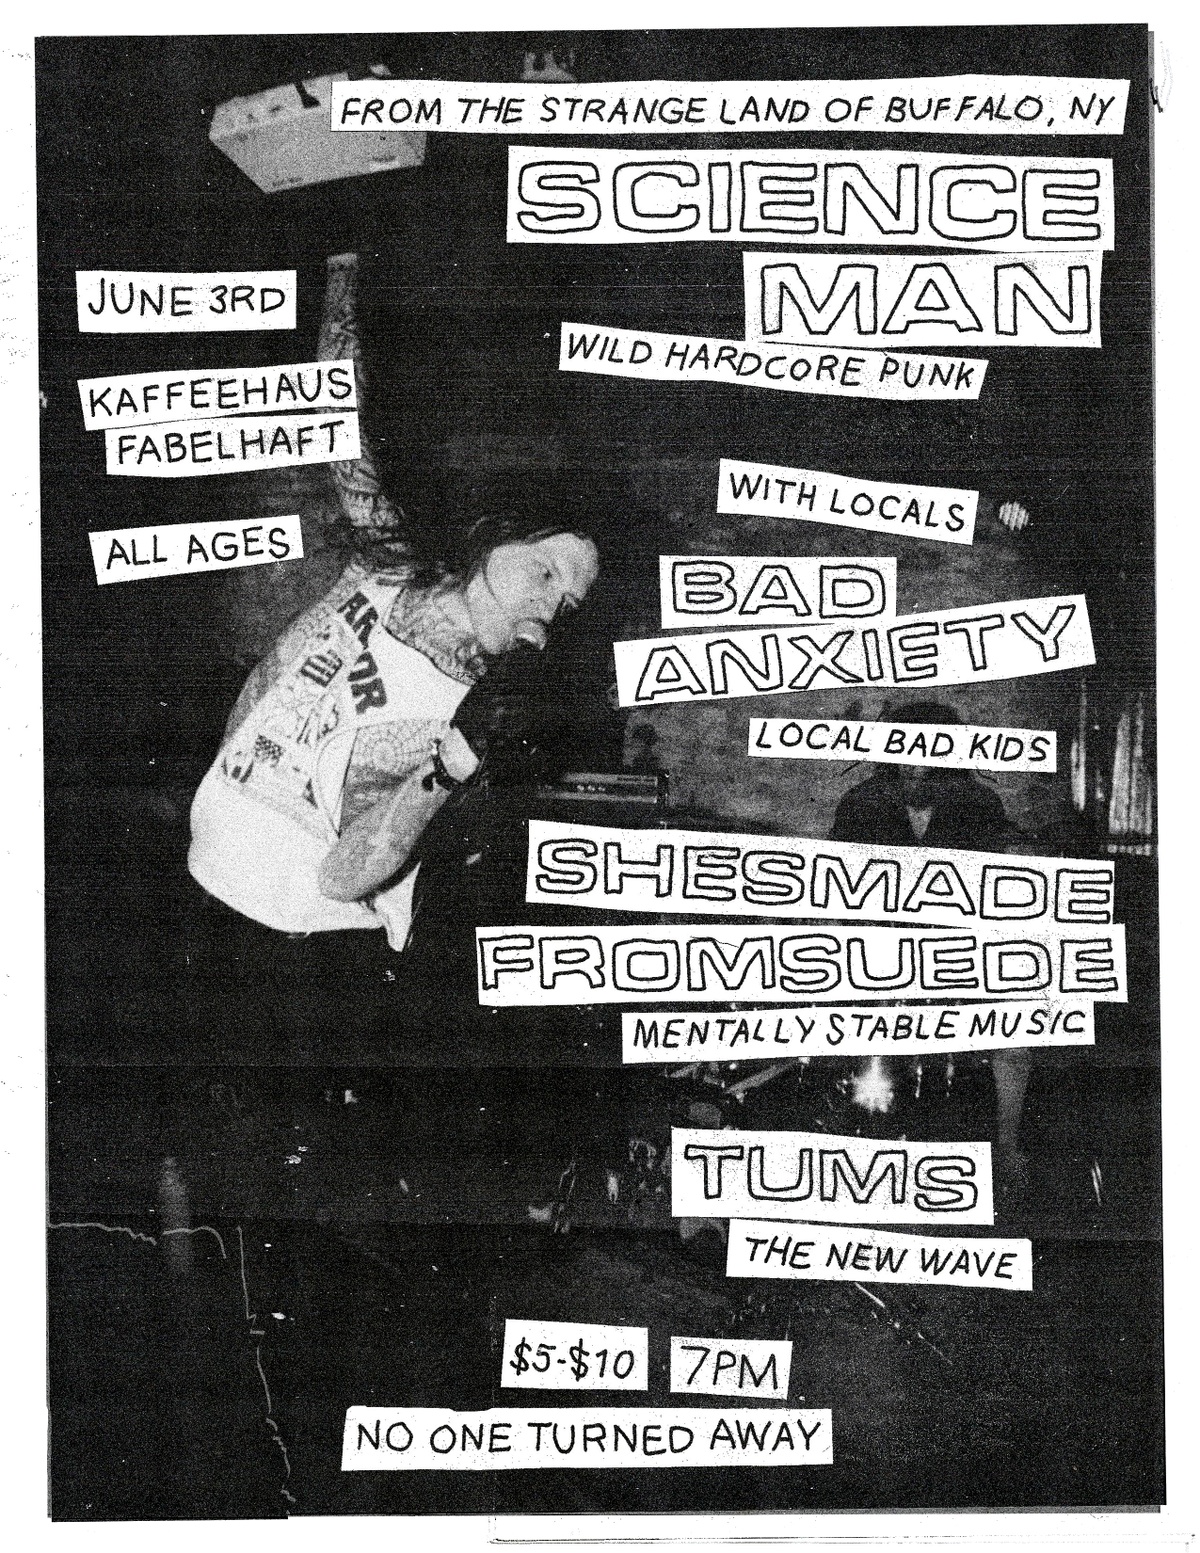 FROM THE STRANGE LAND OF BUFFALO, NY
SCIENCE
MAN
WILD HARDCORE PUNK
JUNE 3RD
KAFFEEHAUS
FABELHAFT
ALL AGES
WITH LOCALS
BAD
ANXIETY
LOCAL BAD KIDS
SHESMADE
FROMSUEDE
MENTALLY STABLE MUSIC
TUMS
THE NEW WAVE
$5-$10 7PM
NO ONE TURNED AWAY